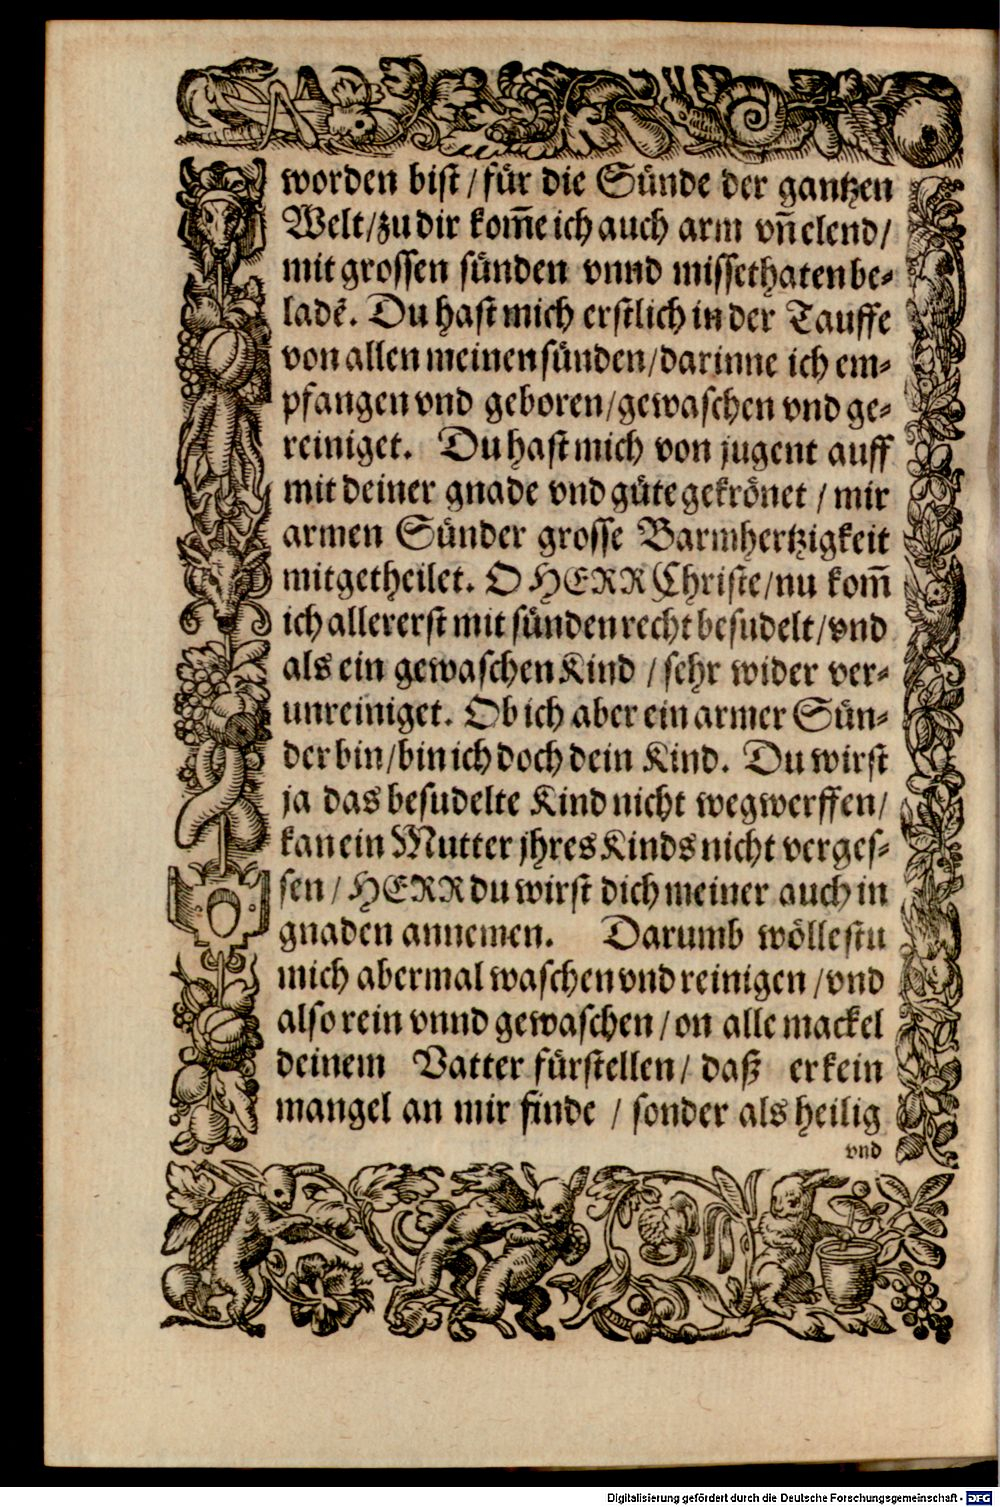 worden bist / für die Sünde der gantzen
Welt / zu dir kom̄e ich auch arm vn̄ elend /
mit grossen sünden vnnd missethaten be-
ladē. Du hast mich erstlich in der Tauffe
von allen meinen sünden / darinne ich em-
pfangen vnd geboren / gewaschen vnd ge-
reiniget. Du hast mich von jugent auff
mit deiner gnade vnd güte gekrönet / mir
armen Sünder grosse Barmhertzigkeit
mitgetheilet. O HERR Christe / nu kom̄
ich allererst mit sünden recht besudelt / vnd
als ein gewaschen Kind / sehr wider ver-
unreiniget. Ob ich aber ein armer Sün-
der bin / bin ich doch dein Kind. Du wirst
ja das besudelte Kind nicht wegwerffen /
kan ein Mutter jhres Kinds nicht verges-
sen / HERR du wirst dich meiner auch in
gnaden annemen. Darumb wöllestu
mich abermal waschen vnd reinigen / vnd
also rein vnnd gewaschen / on alle mackel
deinem Vatter fürstellen / daß er kein
mangel an mir finde / sonder als heilig
vnd
Digitalisierung gefördert durch die Deutsche Forschungsgemeinschaft - DFG